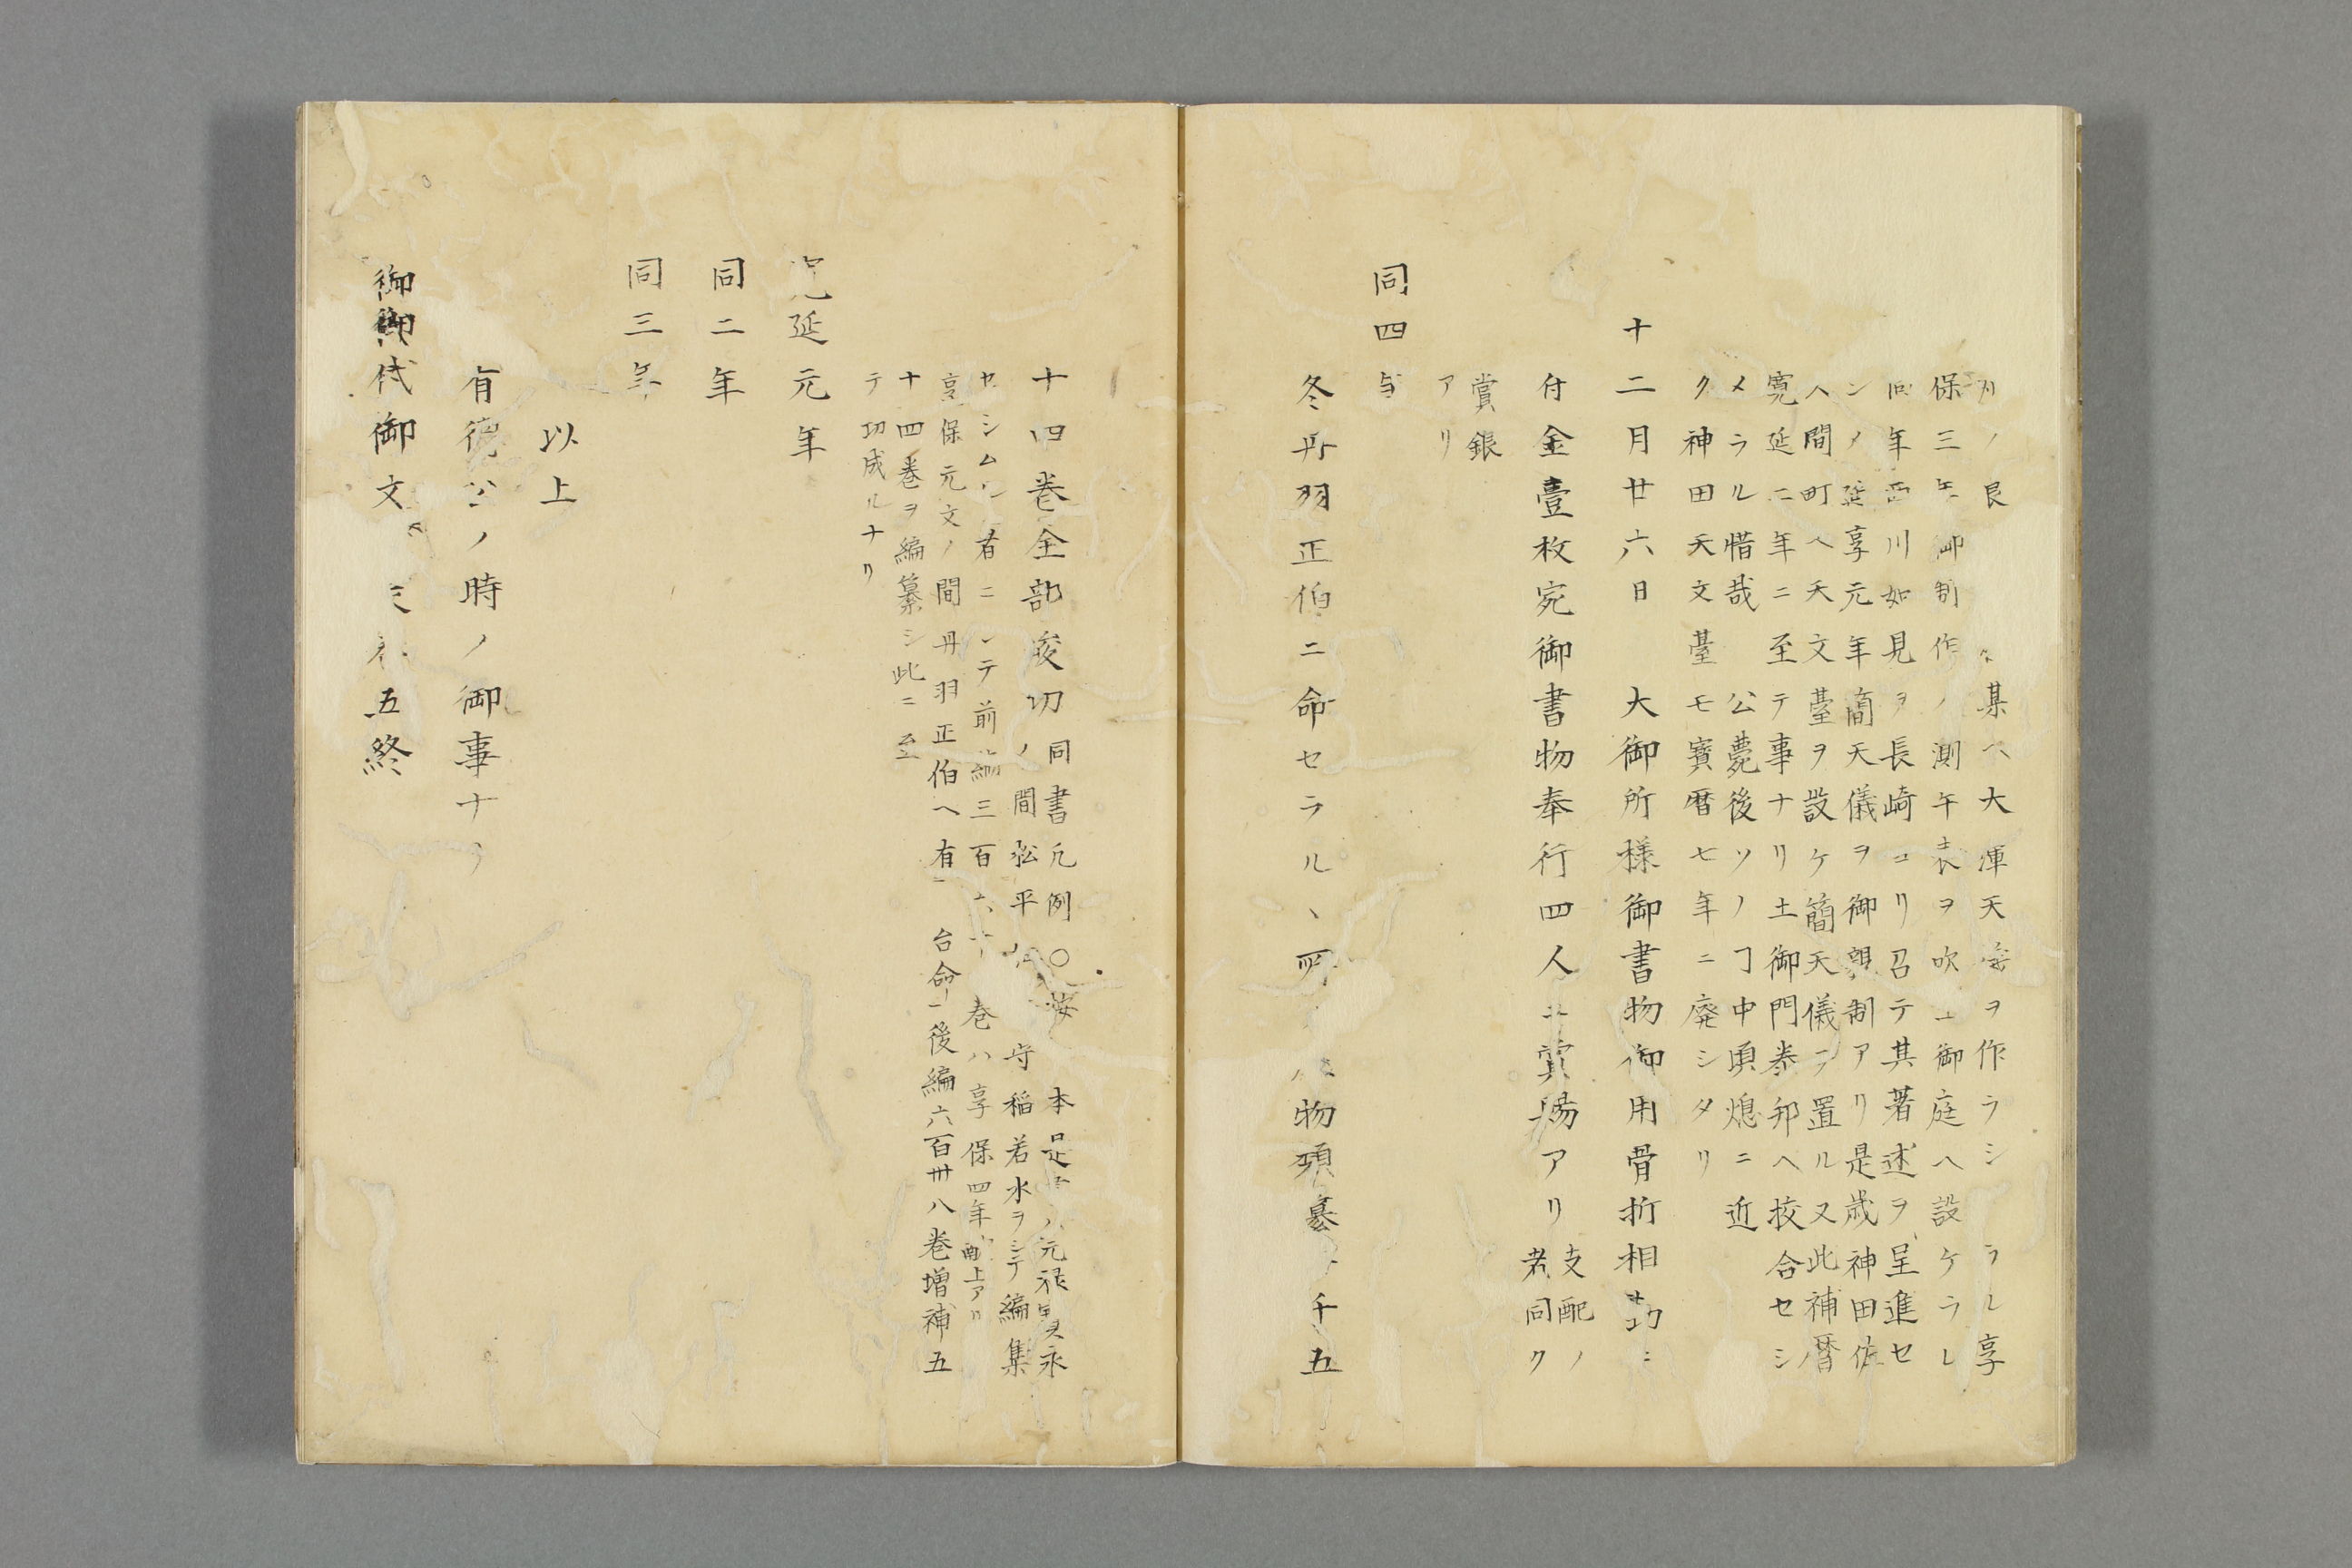 ノ良某ヘ大渾天儀ヲ作ラシラレ享
保三年御制作ノ測午表ヲ吹上御庭ヘ設ケラレ
同年西川如見ヲ長崎ヨリ召テ其著述ヲ呈進セ
シメ延享元年簡天儀ヲ御親制アリ是歳神田佐
ヘ間町ヘ天文臺ヲ設ケ簡天儀ヲ置ル又此補暦
寛延二年ニ至テ事ナリ土御門泰邦ヘ挍合セシ
メラル惜哉 公薨後ソノヿ中頃熄ニ近
ク神田天文臺モ寳暦七年ニ廃シタリ
十二月廿六日 大御所様御書物御用骨折相勤ニ
付金壹枚宛御書物奉行四人ニ賞賜アリ支配ノ
者同ク
賞銀
アリ
同四年
冬丹羽正伯ニ命セラルヽ所物類纂千五
十四巻全部竣功同書凡例○按本是書ハ元禄寳永
ノ間松平守稲若水ヲシテ編集
セシムル者ニシテ前編三百六十巻ハ享保四年献上アリ
享保元文ノ間丹羽正伯ヘ有 台命 後編六百卅八巻増補五
十四巻ヲ編纂シ此ニ至
テ功成ルナリ
寛延元年
同二年
同三年
以上
有徳公ノ時ノ御事ナリ
御代御文五終